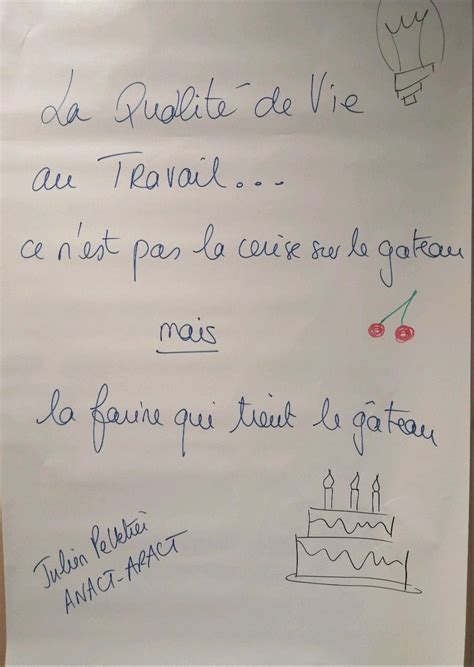 La Qualité de Vie
au Travail...
ce n'est pas la cerise sur le gateau
mais
la farine qui tient le gâteau
Julien Pelletier
ANACT-ARACT